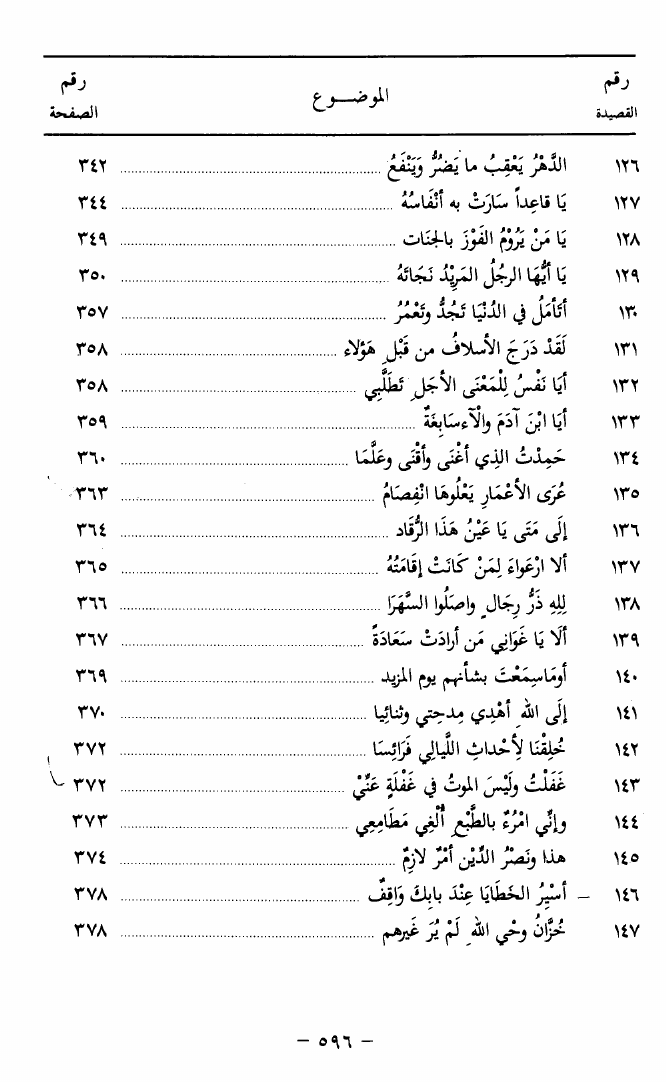 رقم القصيدة الموضـــوع رقم الصفحة
١٢٦ الدَّهْرُ يَعْقِبُ ما يَضُرُّ وَيَنْفَعُ ........ ٣٤٢
١٢٧ يَا قاعِداً سَارَتْ به أنْفَاسُهُ ........ ٣٤٤
١٢٨ يَا مَنْ يَرُوْمُ الفَوْزَ بالجَنات ........ ٣٤٩
١٢٩ يَا أيُّهَا الرجُلُ المَرِيْدُ نَجَاتَهُ ........ ٣٥٠
١٣٠ أتَأمَلُ في الدُنْيَا تَجُدُّ وتَعْمُرُ ........ ٣٥٧
١٣١ لَقَدْ دَرَجَ الأسلافُ من قَبْلِ هَؤلاء ........ ٣٥٨
١٣٢ أيَا نَفْسُ لِلْمَعْنَى الأجَلِ تَطَلَّبِي ........ ٣٥٨
١٣٣ أيَا ابْنَ آدَمَ والْآءسَابِغَةٌ ........ ٣٥٩
١٣٤ حَمِدْتُ الذِي أغْنَى وأقْنَى وعَلَّمَا ........ ٣٦٠
١٣٥ عُرَى الأعْمَارِ يَعْلُوهَا انْفِصَامُ ........ ٣٦٣
١٣٦ إلَى مَتَى يَا عَيْنُ هَذَا الرُّقَاد ........ ٣٦٤
١٣٧ ألا ارْعَواءَ لِمَنْ كَانَتْ إقَامَتُهُ ........ ٣٦٥
١٣٨ لِلهِ ذَرُّ رِجَالٍ واصَلُوا السَّهَرَا ........ ٣٦٦
١٣٩ ألَا يَا غَوَانِي مَن أرادَتْ سَعَادَةً ........ ٣٦٧
١٤٠ أومَاسِمَعْتَ بشأنهم يوم المزيد ........ ٣٦٩
١٤١ إلَى اللهِ أهْدِي مِدحتِي وثنائِيا ........ ٣٧٠
١٤٢ خُلِقْنَا لِأحْداثِ اللَّيالِي فَرَائِسَا ........ ٣٧٢
١٤٣ غَفَلْتُ ولَيْسَ الموتُ في غَفْلَةٍ عَنِّيْ ........ ٣٧٢
١٤٤ وإنِّي امْرُءٌ بالطَّبْعِ أُلْغِي مَطَامِعِي ........ ٣٧٣
١٤٥ هذا ونَصْرُ الدِّيْنِ أمْرٌ لازِمٌ ........ ٣٧٤
١٤٦ – أسيْرُ الخَطَايَا عِنْدَ بابِكَ وَاقِفٌ ........ ٣٧٨
١٤٧ خُزَّانُ وحْي اللهِ لَمْ يُرَ غَيرهم ........ ٣٧٨
– ٥٩٦ –